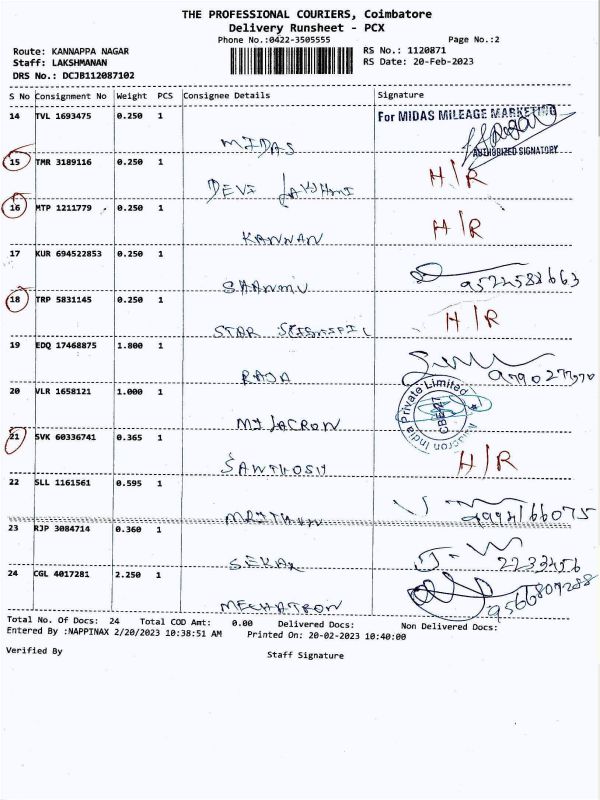 THE PROFESSIONAL COURIERS, Coimbatore
Delivery Runsheet - PCX
Phone No.:0422-3505555 Page No.:2
Route: KANNAPPA NAGAR RS No.: 1120871
Staff: LAKSHMANAN RS Date: 20-Feb-2023
DRS No.: DCJB112087102
S No Consignment No Weight PCS Consignee Details Signature
14 TVL 1693475 0.250 1 MIDAS For MIDAS MILEAGE MARKETING
AUTHORIZED SIGNATORY
15 TMR 3189116 0.250 1 DEVI LAKSHMI H/R
16 MTP 1211779 0.250 1 KANNAN H/R
17 KUR 694522853 0.250 1 SHANMU 9522588663
18 TRP 5831145 0.250 1 STAR H/R
19 EDQ 17468875 1.800 1 RAJA
20 VLR 1658121 1.000 1 MILACRON Milacron India Private Limited CBE-27
21 SVK 60336741 0.365 1 SANTHOSH H/R
22 SLL 1161561 0.595 1 MRITHUN 9994166075
23 RJP 3084714 0.360 1 SEKAR 2233456
24 CGL 4017281 2.250 1 MECHATRON 9566807288
Total No. Of Docs: 24 Total COD Amt: 0.00 Delivered Docs: Non Delivered Docs:
Entered By :NAPPINAX 2/20/2023 10:38:51 AM Printed On: 20-02-2023 10:40:00
Verified By Staff Signature